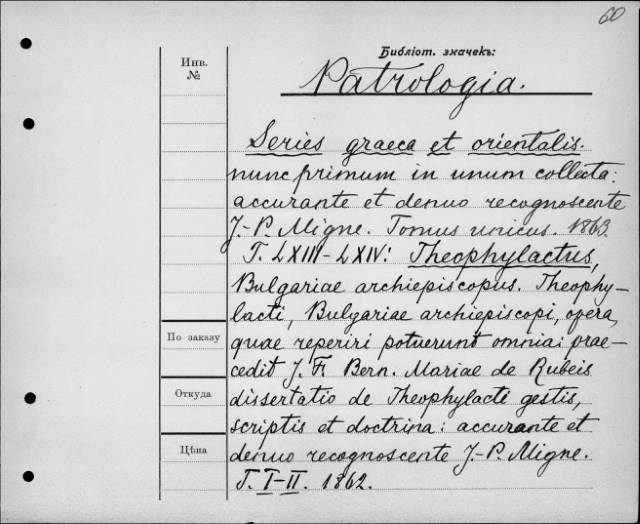 60
Библіот. значекъ:
Инв.
№
Patrologia.
Series graeca et orientalis.
nunc primum in unum collecta:
accurante et denuo recognoscente
J.-P. Migne. Tomus unicus. 1863.
T. LXIII-LXIV: Theophylactus,
Bulgariae archiepiscopus. Theophy-
lacti, Bulgariae archiepiscopi, opera,
По заказу
quae reperiri potuerunt omnia: prae-
cedit J. F. Bern. Mariae de Rubeis
Откуда
dissertatio de Theophylacti gestis,
scriptis et doctrina: accurante et
Цѣна
denuo recognoscente J.-P. Migne.
T. I-II. 1862.